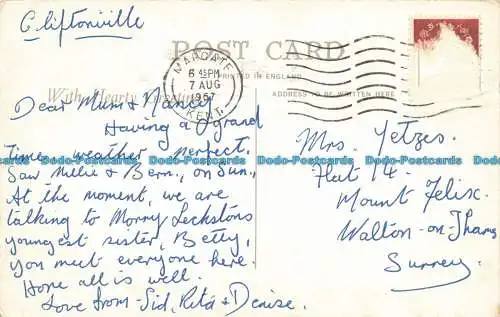 Cliftonville
POST CARD
MARGATE
6 45 PM
7 AUG
1967
KENT.
PRINTED IN ENGLAND
With Hearty Greetings
ADDRESS TO BE WRITTEN HERE
Dear Mum &
Having a grand
Time, weather perfect.
Saw Millie & Bern., on Sun.,
At the moment, we are
talking to Morry Leckstons
youngest sister, Betty,
you meet everyone here.
Hope all is well.
Love from - Sid, Rita & Denise.
Mrs. Yetzes.
Flat 14.
Mount Felix.
Walton-on-Thames
Surrey.
Dodo-Postcards Dodo-Postcards Dodo-Postcards Dodo-Postcards Dodo-Postcards